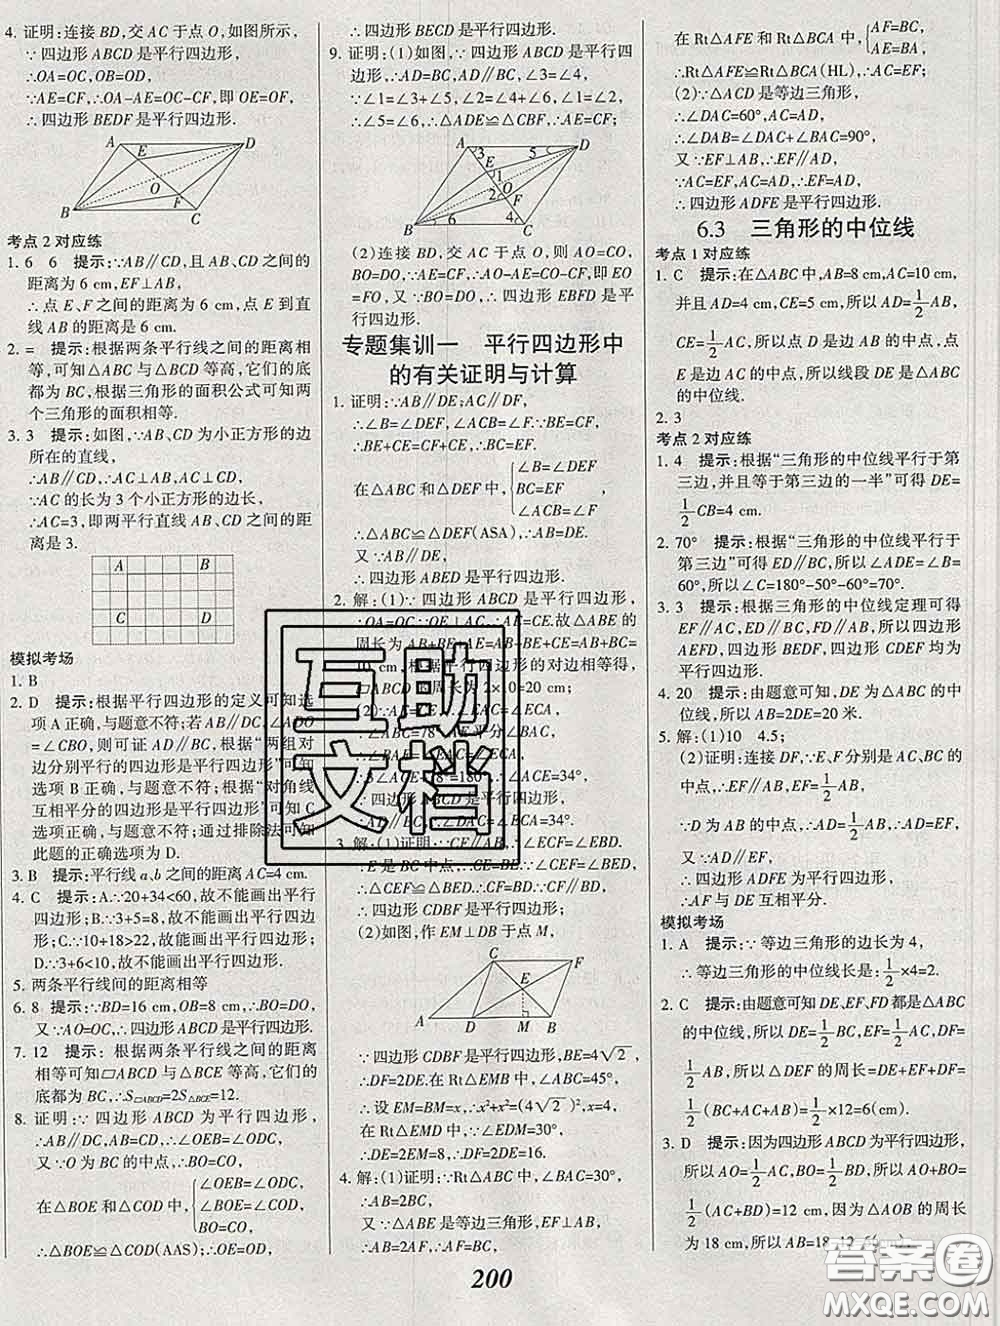 4. 证明:连接BD,交AC于点O,如图所示,
∵四边形ABCD是平行四边形,
∴OA=OC,OB=OD,
∵AE=CF,∴OA-AE=OC-CF,即OE=OF,
∴四边形BEDF是平行四边形.
A D E O B F C
考点2对应练
1. 6 6 提示:∵AB∥CD,且AB、CD之间的
距离为6 cm,EF⊥AB,
∴点E、F之间的距离为6 cm,点E到直
线AB的距离是6 cm.
2. = 提示:根据两条平行线之间的距离相
等,可知△ABC与△DBC等高,它们的底
都为BC,根据三角形的面积公式可知两
个三角形的面积相等.
3. 3 提示:如图,AB、CD为小正方形的边
所在的直线,
∴AB∥CD,∴AC⊥AB,AC⊥CD,
∵AC的长为3个小正方形的边长,
∴AC=3,即两平行直线AB、CD之间的距
离是3.
A B
C D
模拟考场
1. B
2. D 提示:根据平行四边形的定义可知选
项A正确,与题意不符;若AD=BC,∠ADO
=∠CBO,则可证AD∥BC,根据“两组对
边分别平行的四边形是平行四边形”可知
选项B正确,与题意不符;根据“对角线
互相平分的四边形是平行四边形”可知C
选项正确,与题意不符;通过排除法可知
此题的正确选项为D.
3. B 提示:平行线a、b之间的距离AC=4 cm.
4. C 提示:A.∵20+34<60,故不能画出平行
四边形;B.∵3+5=8,故不能画出平行四边
形;C.∵10+18>22,故能画出平行四边形;
D.∵3+6<10,故不能画出平行四边形.
5. 两条平行线间的距离相等
6. 8 提示:∵BD=16 cm,OB=8 cm,∴BO=DO,
又∵AO=OC,∴四边形ABCD是平行四边形.
7. 12 提示:根据两条平行线之间的距离
相等可知▱ABCD与△BCE等高,它们的
底都为BC,∴S▱ABCD=2S△BCE=12.
8. 证明:∵四边形ABCD为平行四边形,
∴AB∥DC,AB=CD,∴∠OEB=∠ODC,
又∵O为BC的中点,∴BO=CO,
在△BOE和△COD中,{∠OEB=∠ODC
∠BOE=∠COD,
BO=CO
∴△BOE≌△COD(AAS);∴OE=OD,
∴四边形BECD是平行四边形.
9. 证明:(1)如图,∵四边形ABCD是平行四
边形,∴AD=BC,AD∥BC,∠3=∠4,
∵∠1=∠3+∠5,∠2=∠4+∠6,∠1=∠2,
∴∠5=∠6,∴△ADE≌△CBF,∴AE=CF;
A 3 5 D E 1 O 2 F B 6 4 C
(2)连接BD,交AC于点O,则AO=CO,
BO=DO,∵AE=CF,∴AO-AE=CO-CF,即EO
=FO,又∵BO=DO,∴四边形EBFD是平
行四边形.
专题集训一 平行四边形中
的有关证明与计算
1. 证明:∵AB∥DE;AC∥DF,
∴∠B=∠DEF,∠ACB=∠F.∵BE=CF,
∴BE+CE=CF+CE,∴BC=EF.
在△ABC和△DEF中,{∠B=∠DEF
BC=EF,
∠ACB=∠F
∴△ABC≌△DEF(ASA),∴AB=DE,
又∵AB∥DE,
∴四边形ABED是平行四边形.
2. 解:(1)∵四边形ABCD是平行四边形,
∴OA=OC.∵OE⊥AC,∴AE=CE.故△ABE的
周长为AB+BE+AE=AB+BE+CE=AB+BC=
10 cm,根据平行四边形的对边相等得,
▱ABCD的周长为2×10=20 cm;
3∠ACE+78°=180°,∴∠ACE=34°,
∵四边形ABCD是平行四边形,
3. 解:(1)证明:∵CF∥AB,∴∠ECF=∠EBD.
∵E是BC中点,∴CE=BE.
∴△CEF≌△BED.∴CF=BD.
∴四边形CDBF是平行四边形;
(2)如图,作EM⊥DB于点M,
C F E A D M B
∵四边形CDBF是平行四边形,BE=4√2,
∴DF=2DE.在Rt△EMB中,∠ABC=45°,
∴设EM=BM=x,∴x²+x²=(4√2)²,∴x=4,
在Rt△EMD中,∵∠EDM=30°,
∴DE=2EM=8,∴DF=2DE=16.
4. 解:(1)证明:∵Rt△ABC中,∠BAC=30°,
∴AB=2BC,
又∵△ABE是等边三角形,EF⊥AB,
∴AB=2AF,∴AF=BC,
在Rt△AFE和Rt△BCA中,{AF=BC,
AE=BA,
∴Rt△AFE≌Rt△BCA(HL),∴AC=EF;
(2)∵△ACD是等边三角形,
∴∠DAC=60°,AC=AD,
∴∠DAB=∠DAC+∠BAC=90°,
又∵EF⊥AB,∴EF∥AD,
∵AC=EF,AC=AD,∴EF=AD,
∴四边形ADFE是平行四边形.
6.3 三角形的中位线
考点1对应练
1. C 提示:在△ABC中,AB=8 cm,AC=10 cm,
并且AD=4 cm,CE=5 cm,所以AD=1/2AB,
CE=1/2AC,所以点D是边AB的中点,点
E是边AC的中点,所以线段DE是△ABC
的中位线.
2. 3
考点2对应练
1. 4 提示:根据“三角形的中位线平行于第
三边,并且等于第三边的一半”可得DE=
1/2CB=4 cm.
2. 70° 提示:根据“三角形的中位线平行于
第三边”可得ED∥BC,所以∠ADE=∠B=
60°,所以∠C=180°-50°-60°=70°.
3. 3 提示:根据三角形的中位线定理可得
EF∥AC,ED∥BC,DF∥AB,所以四边形
AEFD,四边形BEDF,四边形CDEF均为
平行四边形.
4. 20 提示:由题意可知,DE为△ABC的中
位线,所以AB=2DE=20米.
5. 解:(1)10 4.5;
(2)证明:连接DF,∵E、F分别是AC、BC的
中点,∴EF∥AB,EF=1/2AB,
∵D为AB的中点,∴AD=1/2AB,∴AD=EF;
又∵AD∥EF,
∴四边形ADFE为平行四边形,
∴AF与DE互相平分.
模拟考场
1. A 提示:∵等边三角形的边长为4,
∴等边三角形的中位线长是:1/2×4=2.
2. C 提示:由题意可知DE、EF、FD都是△ABC
的中位线,所以DE=1/2BC,EF=1/2AC,DF=
1/2AB,所以△DEF的周长=DE+EF+DF=
1/2(BC+AC+AB)=1/2×12=6(cm).
3. D 提示:因为四边形ABCD为平行四边形,
所以AO=1/2AC,BO=1/2BD,所以AO+BO=
1/2(AC+BD)=12 cm,因为△AOB的周长
为18 cm,所以AB=18-12=6(cm).
200
互助
文档
答案圈
MXQE.COM